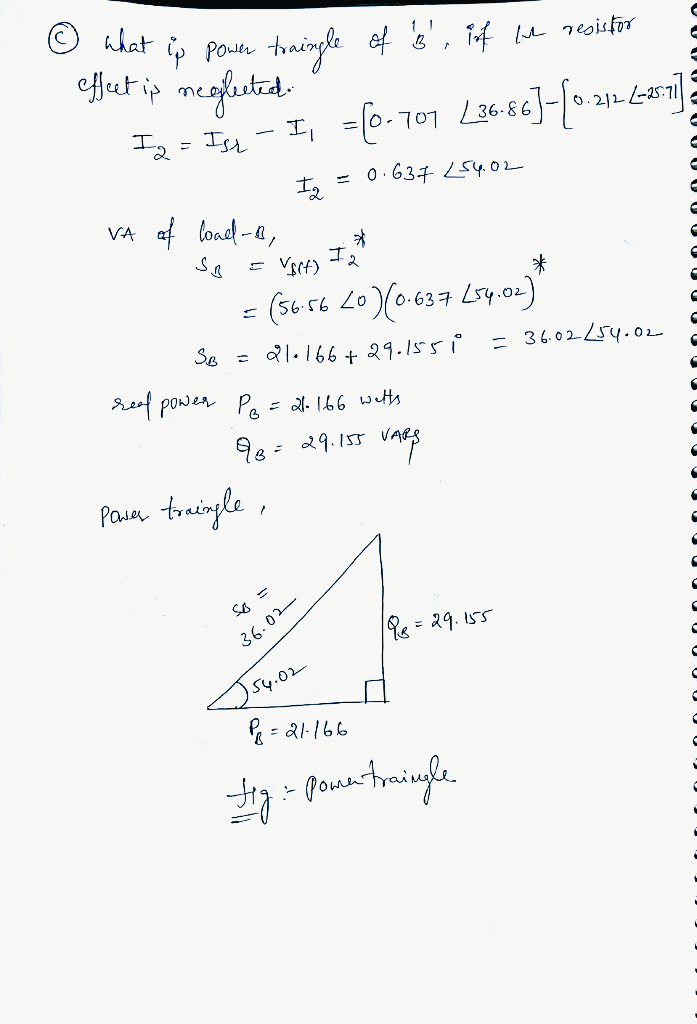 ⓒ What is power traingle of 'B', if 1Ω resistor
effect is neglected.
I₂ = Isr - I₁ = [0.707 ∠36.86] - [0.212 ∠-25.71]
I₂ = 0.637 ∠54.02
VA of load-B,
S_B = V_B(t) I₂*
= (56.56 ∠0)(0.637 ∠54.02)*
S_B = 21.166 + 29.155 i = 36.02 ∠54.02
real power P_B = 21.166 watts
Q_B = 29.155 VARs
Power traingle,
S_B =
36.02
Q_B = 29.155
54.02
P_B = 21.166
Fig :- power traingle